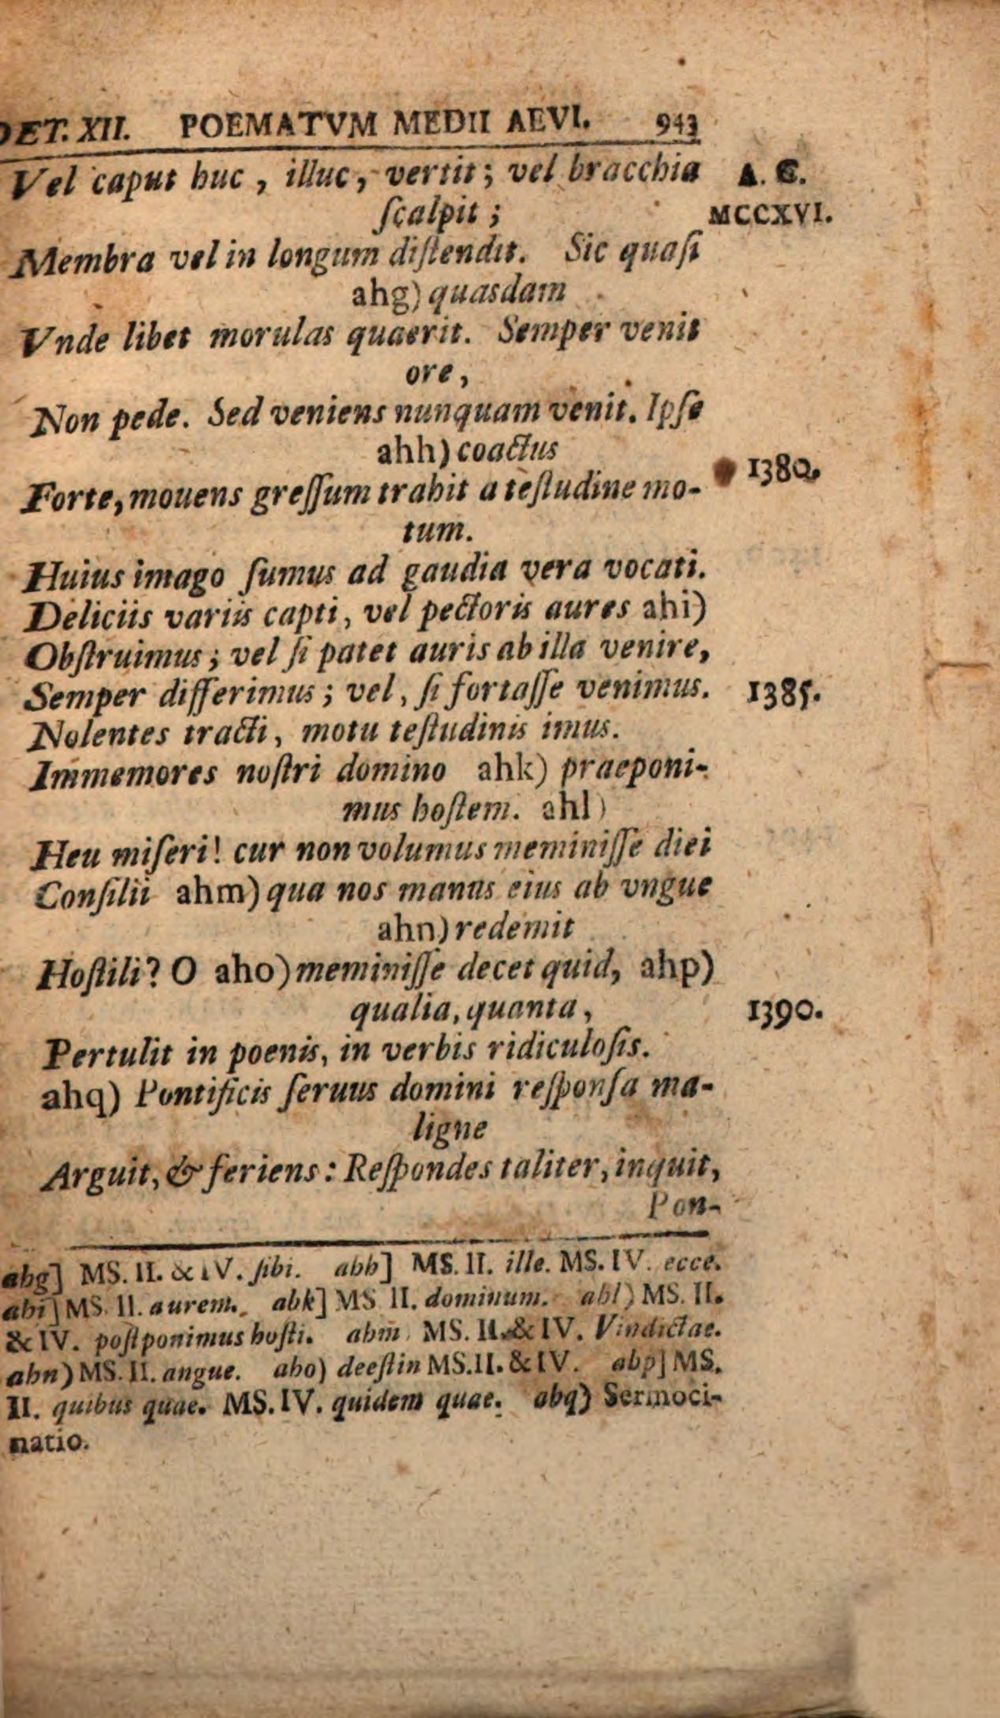 DET. XII. POEMATVM MEDII AEVI. 943
Vel caput huc, illuc, vertit; vel bracchia A. C.
ſcalpit; MCCXVI.
Membra vel in longum diſtendit. Sic quaſi
ahg) quasdam
Vnde libet morulas quaerit. Semper venit
ore,
Non pede. Sed veniens nunquam venit. Ipſe
ahh) coactus 1380.
Forte, mouens greſſum trahit a teſtudine mo-
tum.
Huius imago ſumus ad gaudia vera vocati.
Deliciis variis capti, vel pectoris aures ahi)
Obſtruimus; vel ſi patet auris ab illa venire,
Semper differimus; vel, ſi fortaſſe venimus. 1385.
Nolentes tracti, motu teſtudinis imus.
Immemores noſtri domino ahk) praeponi-
mus hoſtem. ahl)
Heu miſeri! cur non volumus meminiſſe diei
Conſilii ahm) qua nos manus eius ab vngue
ahn) redemit
Hoſtili? O aho) meminiſſe decet quid, ahp)
qualia, quanta, 1390.
Pertulit in poenis, in verbis ridiculoſis.
ahq) Pontificis ſeruus domini reſponſa ma-
ligne
Arguit, & feriens: Reſpondes taliter, inquit,
Pon-
ahg] MS. II. & IV. ſibi. ahh] MS. II. ille. MS. IV. ecce.
ahi] MS. II. aurem. ahk] MS II. dominum. ahl) MS. II.
& IV. poſtponimus hoſti. ahm MS. II. & IV. Vindictae.
ahn) MS. II. angue. aho) deeſt in MS. II. & IV. ahp] MS.
II. quibus quae. MS. IV. quidem quae. ahq) Sermoci-
natio.